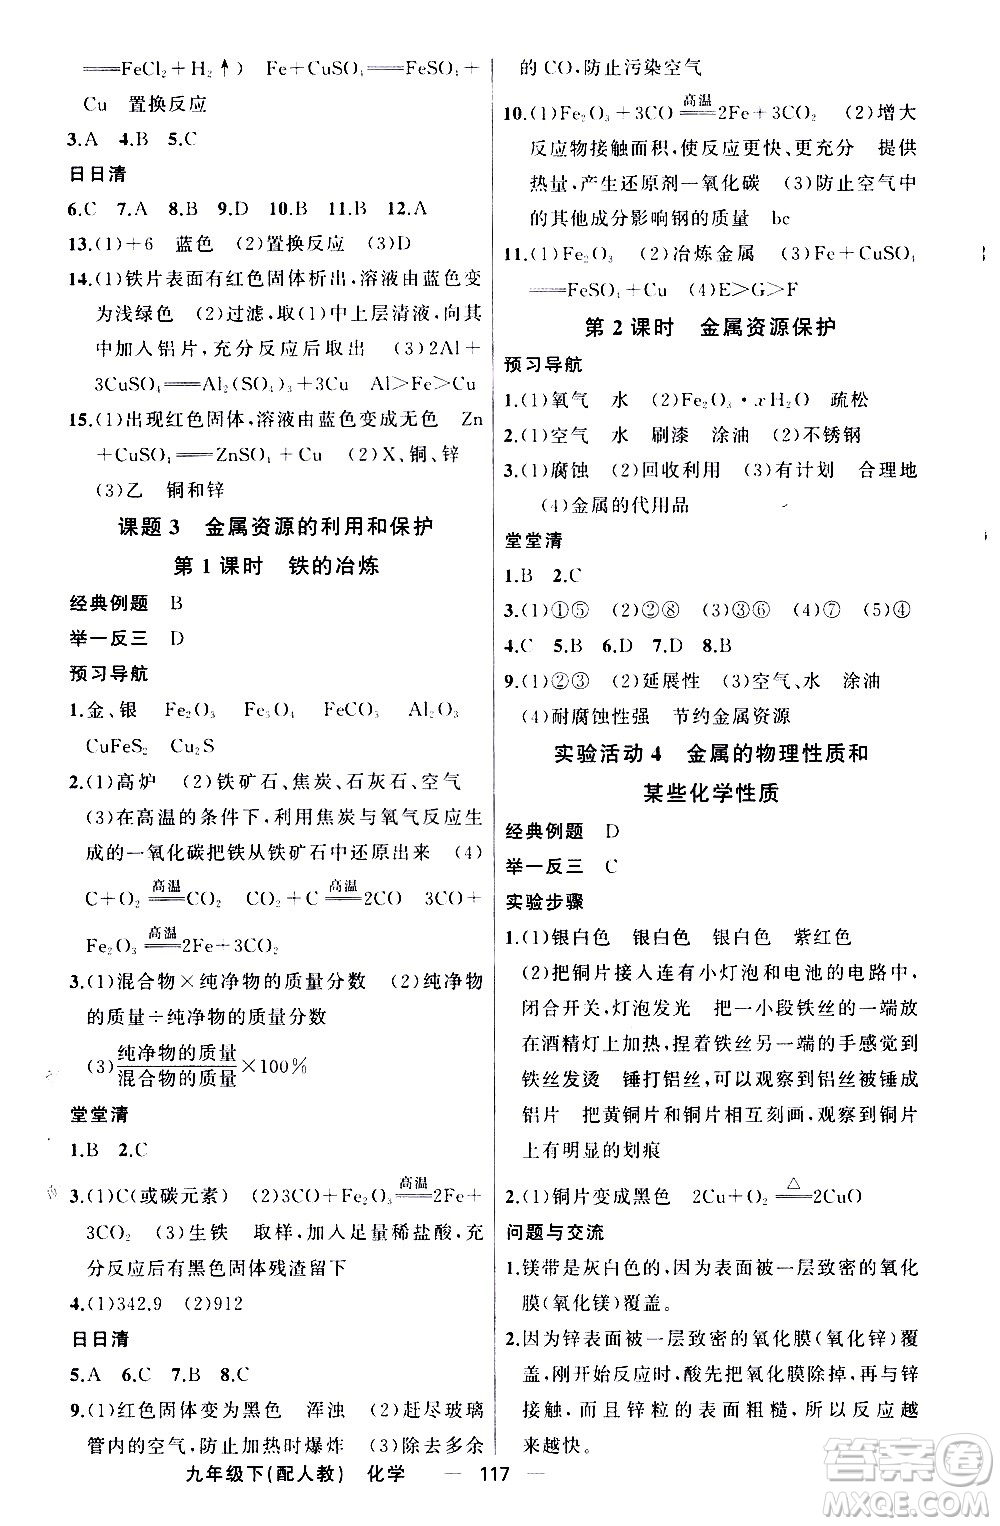 ══FeCl₂+H₂↑) Fe+CuSO₄══FeSO₄+
Cu 置换反应
3.A 4.B 5.C
日日清
6.C 7.A 8.B 9.D 10.B 11.B 12.A
13.(1)+6 蓝色 (2)置换反应 (3)D
14.(1)铁片表面有红色固体析出,溶液由蓝色变
为浅绿色 (2)过滤,取(1)中上层清液,向其
中加入铝片,充分反应后取出 (3)2Al+
3CuSO₄══Al₂(SO₄)₃+3Cu Al>Fe>Cu
15.(1)出现红色固体,溶液由蓝色变成无色 Zn
+CuSO₄══ZnSO₄+Cu (2)X、铜、锌
(3)乙 铜和锌
课题3 金属资源的利用和保护
第1课时 铁的冶炼
经典例题 B
举一反三 D
预习导航
1.金、银 Fe₂O₃ Fe₃O₄ FeCO₃ Al₂O₃
CuFeS₂ Cu₂S
2.(1)高炉 (2)铁矿石、焦炭、石灰石、空气
(3)在高温的条件下,利用焦炭与氧气反应生
成的一氧化碳把铁从铁矿石中还原出来 (4)
C+O₂高温══CO₂ CO₂+C高温══2CO 3CO+
Fe₂O₃高温══2Fe+3CO₂
3.(1)混合物×纯净物的质量分数 (2)纯净物
的质量÷纯净物的质量分数
(3)纯净物的质量/混合物的质量×100%
堂堂清
1.B 2.C
3.(1)C(或碳元素) (2)3CO+Fe₂O₃高温══2Fe+
3CO₂ (3)生铁 取样,加入足量稀盐酸,充
分反应后有黑色固体残渣留下
4.(1)342.9 (2)912
日日清
5.A 6.C 7.B 8.C
9.(1)红色固体变为黑色 浑浊 (2)赶尽玻璃
管内的空气,防止加热时爆炸 (3)除去多余
的CO,防止污染空气
10.(1)Fe₂O₃+3CO高温══2Fe+3CO₂ (2)增大
反应物接触面积,使反应更快、更充分 提供
热量,产生还原剂一氧化碳 (3)防止空气中
的其他成分影响钢的质量 bc
11.(1)Fe₂O₃ (2)冶炼金属 (3)Fe+CuSO₄
══FeSO₄+Cu (4)E>G>F
第2课时 金属资源保护
预习导航
1.(1)氧气 水 (2)Fe₂O₃·xH₂O 疏松
2.(1)空气 水 刷漆 涂油 (2)不锈钢
3.(1)腐蚀 (2)回收利用 (3)有计划 合理地
(4)金属的代用品
堂堂清
1.B 2.C
3.(1)①⑤ (2)②⑧ (3)③⑥ (4)⑦ (5)④
4.C 5.B 6.D 7.D 8.B
9.(1)②③ (2)延展性 (3)空气、水 涂油
(4)耐腐蚀性强 节约金属资源
实验活动4 金属的物理性质和
某些化学性质
经典例题 D
举一反三 C
实验步骤
1.(1)银白色 银白色 银白色 紫红色
(2)把铜片接入连有小灯泡和电池的电路中,
闭合开关,灯泡发光 把一小段铁丝的一端放
在酒精灯上加热,捏着铁丝另一端的手感觉到
铁丝发烫 锤打铝丝,可以观察到铝丝被锤成
铝片 把黄铜片和铜片相互刻画,观察到铜片
上有明显的划痕
2.(1)铜片变成黑色 2Cu+O₂△══2CuO
问题与交流
1.镁带是灰白色的,因为表面被一层致密的氧化
膜(氧化镁)覆盖。
2.因为锌表面被一层致密的氧化膜(氧化锌)覆
盖,刚开始反应时,酸先把氧化膜除掉,再与锌
接触,而且锌粒的表面粗糙,所以反应越
来越快。
九年级下(配人教) 化学 — 117 —
答案圈
MXQE.COM